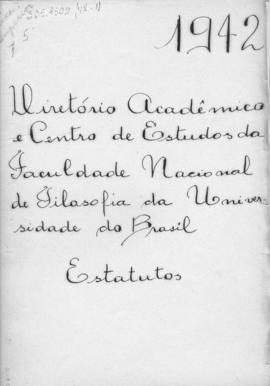 1942
Diretório Acadêmico
e Centro de Estudos da
Faculdade Nacional
de Filosofia da Univer-
sidade do Brasil
Estatutos